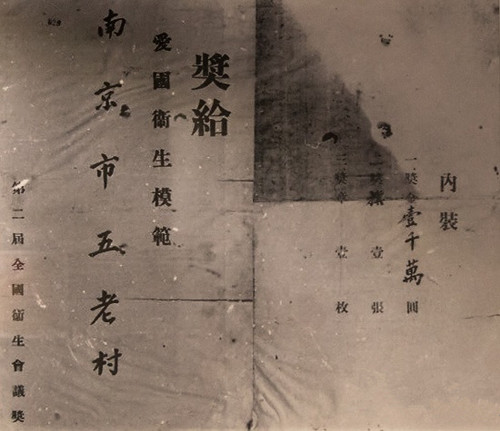 內裝
一獎金壹千萬圓
二獎狀壹張
三獎章壹枚
獎給
愛國衞生模範
南京市五老村
第二屆全國衞生會議獎